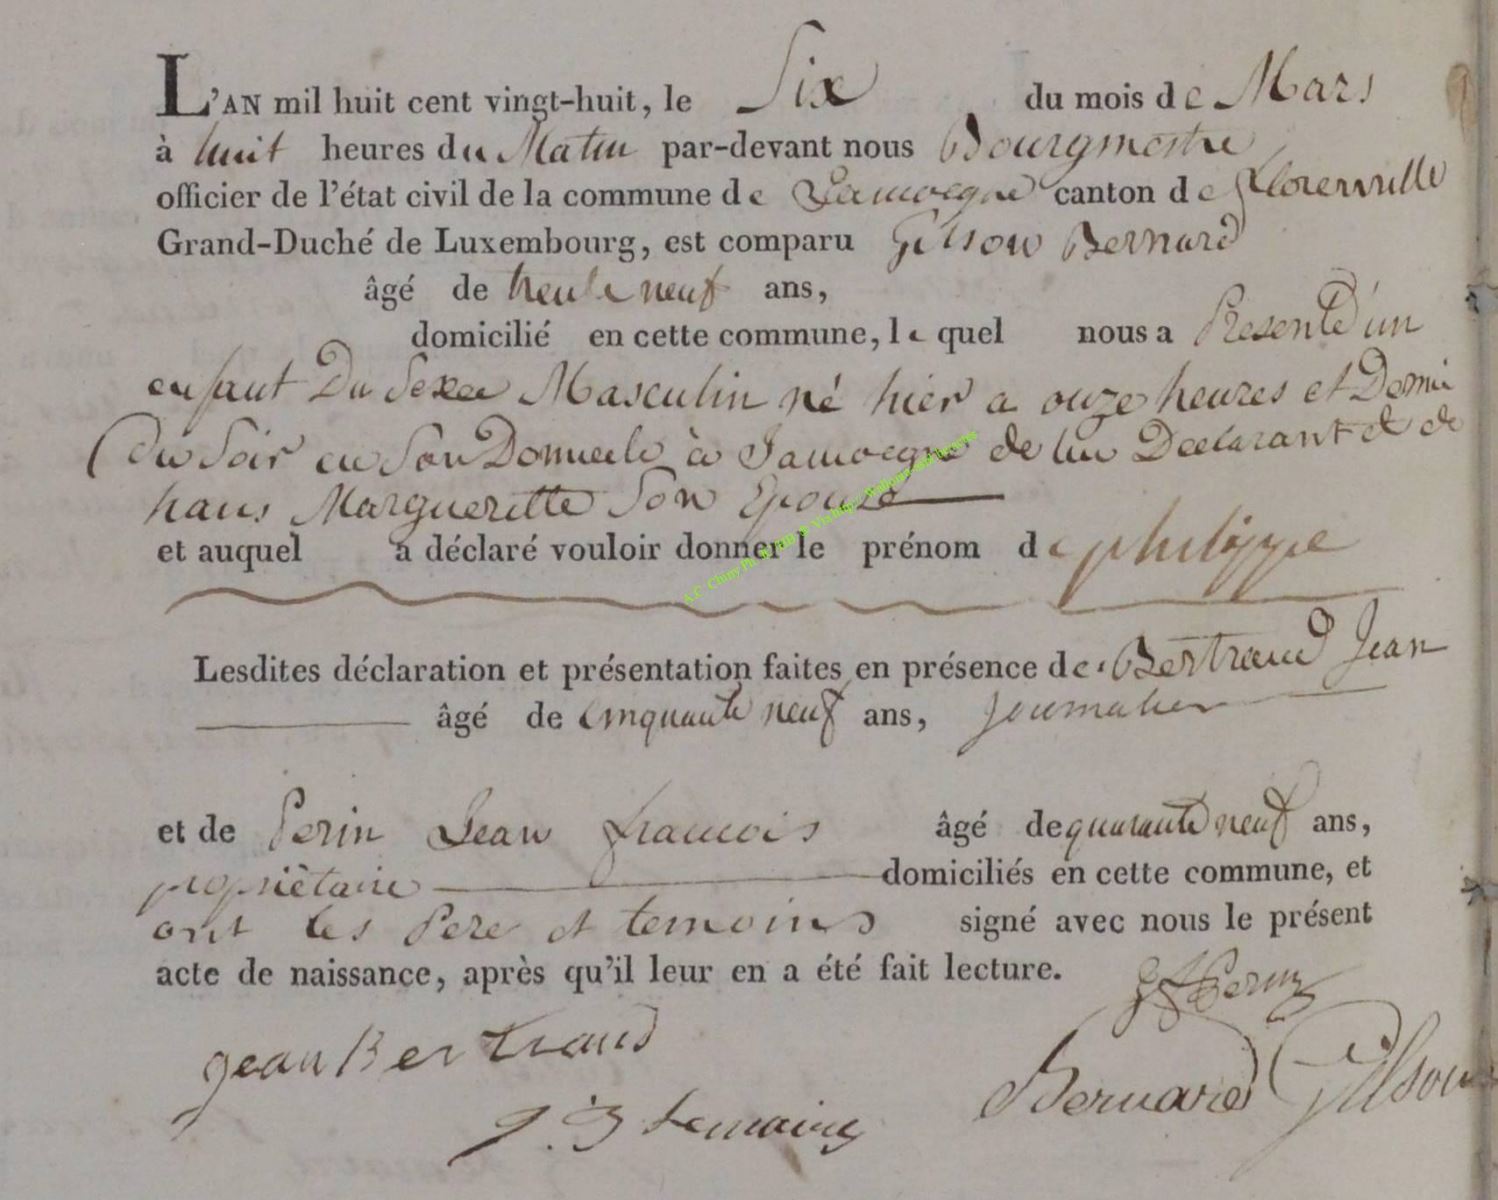 L'AN mil huit cent vingt-huit, le Six du mois de Mars
à huit heures du Matin par-devant nous Bourgmestre
officier de l'état civil de la commune de Jamoegne canton de florenville
Grand-Duché de Luxembourg, est comparu Gilson Bernard
âgé de trente neuf ans,
domicilié en cette commune, le quel nous a Presenté un
enfant Du Sexe Masculin né hier a onze heures et Demi
Du Soir en Son Domicile à Jamoegne de lui Declarant et de
hans Margueritte Son Epouse
et auquel a déclaré vouloir donner le prénom de philippe
Lesdites déclaration et présentation faites en présence de Bertrand Jean
âgé de Cinquante neuf ans, Journalier
et de Perin Jean francois âgé de quarante neuf ans,
propriètaire domiciliés en cette commune, et
ont les Pere et temoins signé avec nous le présent
acte de naissance, après qu'il leur en a été fait lecture.
Perin
jean Bertrand
Bernard Gilson
J. B Lemaire